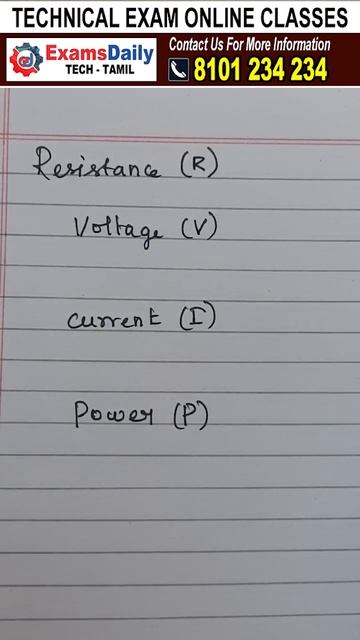 TECHNICAL EXAM ONLINE CLASSES
ExamsDaily
TECH - TAMIL
Contact Us For More Information
8101 234 234
Resistance (R)
Voltage (V)
current (I)
Power (P)